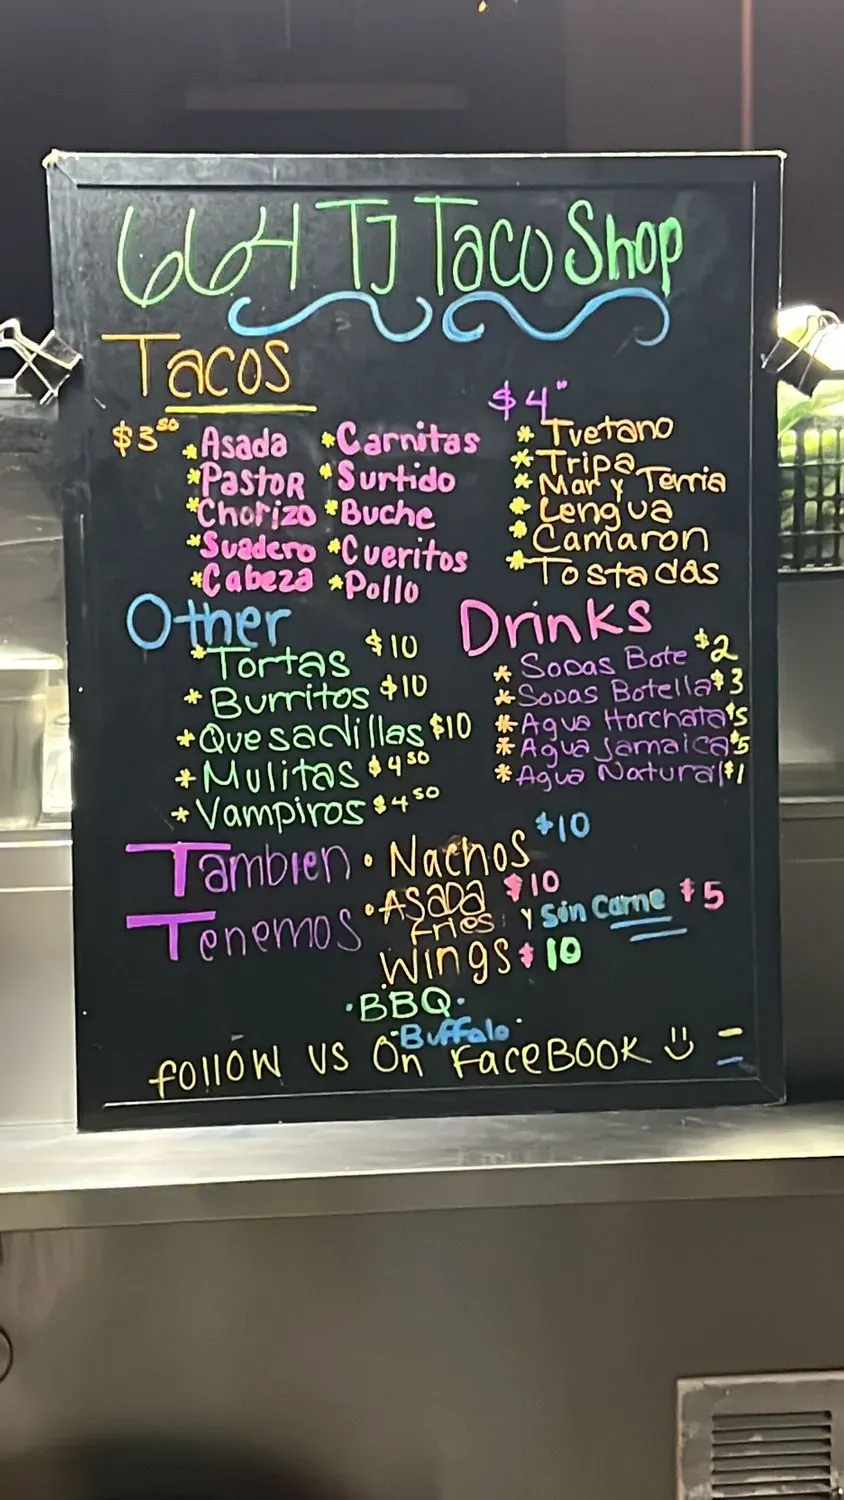 664 TJ Taco Shop
Tacos
$3⁵⁰
*Asada *Carnitas
*Pastor *Surtido
*Chorizo *Buche
*Suadero *Cueritos
*Cabeza *Pollo
$4
* Tvetano
* Tripa
* Mar y Terria
* Lengua
* Camaron
* Tostadas
Other
*Tortas $10
* Burritos $10
*Quesadillas $10
*Mulitas $4⁵⁰
*Vampiros $4⁵⁰
Drinks
* Sodas Bote $2
*Sodas Botella $3
*Agua Horchata $5
*Agua Jamaica $5
*Agua Natural $1
Tambien
Tenemos
• Nachos $10
• Asada Fries $10 y Sin Carne $5
Wings $10
• BBQ •
- Buffalo -
Follow us On FaceBook